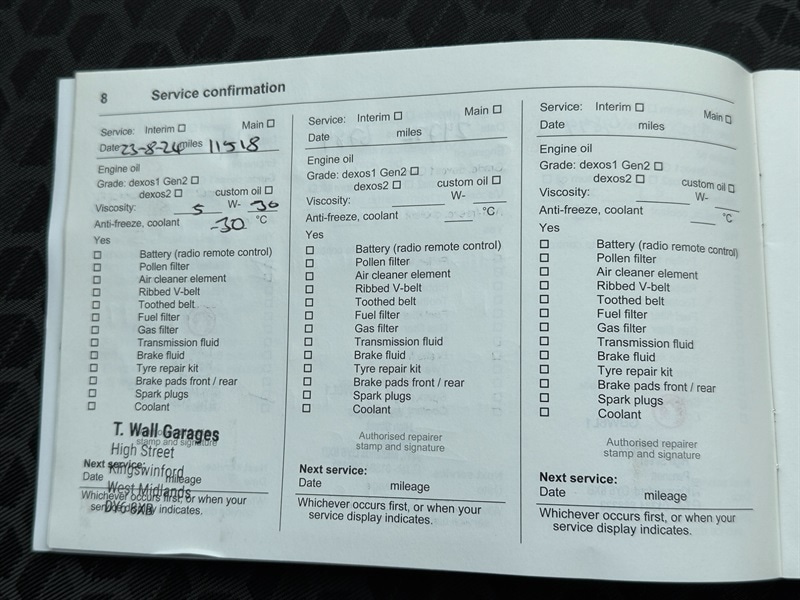 8 Service confirmation
Service: Interim ☐ Main ☐
Date 23-8-24 miles 11518
Engine oil
Grade: dexos1 Gen2 ☐
dexos2 ☐ custom oil ☐
Viscosity: 5 W- 30
Anti-freeze, coolant -30 °C
Yes
☐ Battery (radio remote control)
☐ Pollen filter
☐ Air cleaner element
☐ Ribbed V-belt
☐ Toothed belt
☐ Fuel filter
☐ Gas filter
☐ Transmission fluid
☐ Brake fluid
☐ Tyre repair kit
☐ Brake pads front / rear
☐ Spark plugs
☐ Coolant
T. Wall Garages
stamp and signature
High Street
Next service:
Kingswinford
Date mileage
West Midlands
Whichever occurs first, or when your
DY6 8XB
service display indicates.
Service: Interim ☐ Main ☐
Date miles
Engine oil
Grade: dexos1 Gen2 ☐
dexos2 ☐ custom oil ☐
Viscosity: W-
Anti-freeze, coolant °C
Yes
☐ Battery (radio remote control)
☐ Pollen filter
☐ Air cleaner element
☐ Ribbed V-belt
☐ Toothed belt
☐ Fuel filter
☐ Gas filter
☐ Transmission fluid
☐ Brake fluid
☐ Tyre repair kit
☐ Brake pads front / rear
☐ Spark plugs
☐ Coolant
Authorised repairer
stamp and signature
Next service:
Date mileage
Whichever occurs first, or when your
service display indicates.
Service: Interim ☐ Main ☐
Date miles
Engine oil
Grade: dexos1 Gen2 ☐
dexos2 ☐ custom oil ☐
Viscosity: W-
Anti-freeze, coolant °C
Yes
☐ Battery (radio remote control)
☐ Pollen filter
☐ Air cleaner element
☐ Ribbed V-belt
☐ Toothed belt
☐ Fuel filter
☐ Gas filter
☐ Transmission fluid
☐ Brake fluid
☐ Tyre repair kit
☐ Brake pads front / rear
☐ Spark plugs
☐ Coolant
Authorised repairer
stamp and signature
Next service:
Date mileage
Whichever occurs first, or when your
service display indicates.